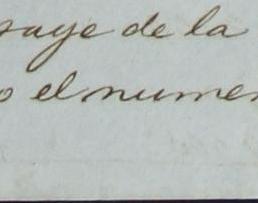 saye de la
o el numer